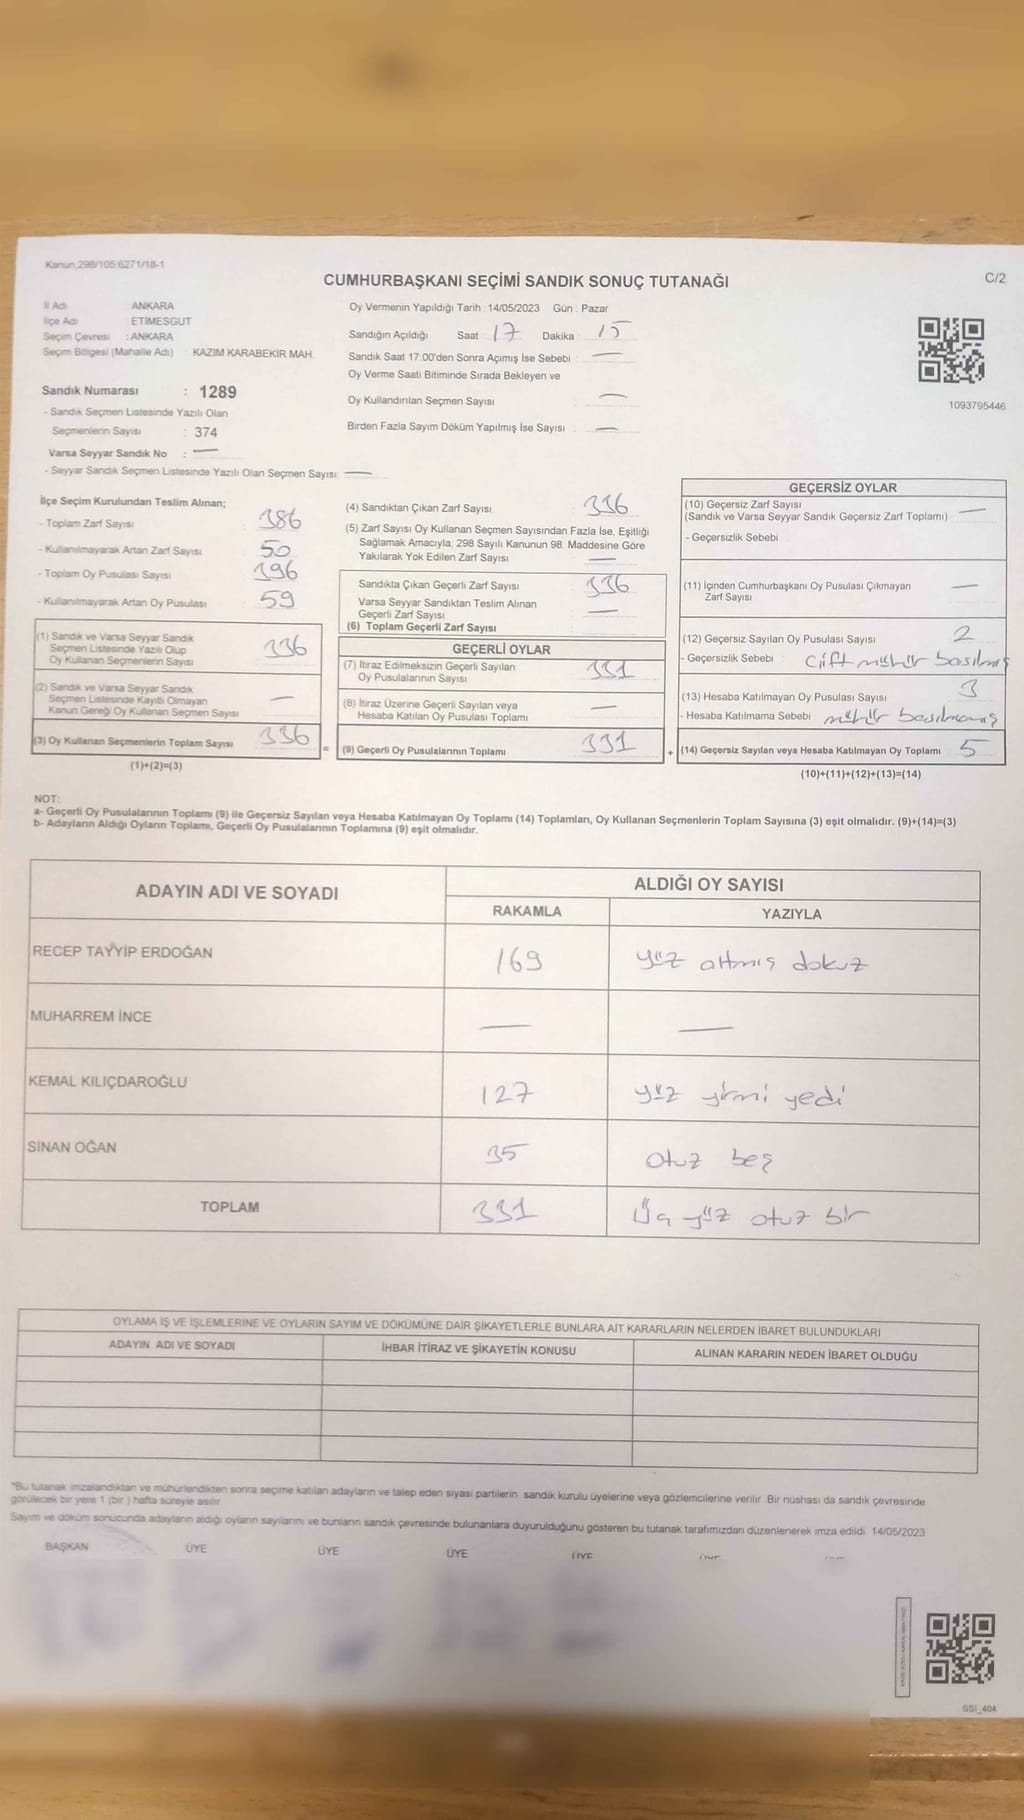 Kanun;298/105;6271/18-1
CUMHURBAŞKANI SEÇİMİ SANDIK SONUÇ TUTANAĞI
C/2
İl Adı ANKARA
İlçe Adı ETİMESGUT
Seçim Çevresi : ANKARA
Seçim Bölgesi (Mahalle Adı) : KAZIM KARABEKİR MAH.
Sandık Numarası : 1289
- Sandık Seçmen Listesinde Yazılı Olan
Seçmenlerin Sayısı : 374
Varsa Seyyar Sandık No : —
- Seyyar Sandık Seçmen Listesinde Yazılı Olan Seçmen Sayısı: —
Oy Vermenin Yapıldığı Tarih : 14/05/2023 Gün : Pazar
Sandığın Açıldığı Saat 17 Dakika : 15
Sandık Saat 17:00'den Sonra Açımış İse Sebebi : —
Oy Verme Saati Bitiminde Sırada Bekleyen ve
Oy Kullandırılan Seçmen Sayısı : —
Birden Fazla Sayım Döküm Yapılmış İse Sayısı : —
1093795446
İlçe Seçim Kurulundan Teslim Alınan;
- Toplam Zarf Sayısı : 386
- Kullanılmayarak Artan Zarf Sayısı : 50
- Toplam Oy Pusulası Sayısı : 396
- Kullanılmayarak Artan Oy Pusulası : 59
(1) Sandık ve Varsa Seyyar Sandık
Seçmen Listesinde Yazılı Olup
Oy Kullanan Seçmenlerin Sayısı : 336
(2) Sandık ve Varsa Seyyar Sandık
Seçmen Listesinde Kayıtlı Olmayan
Kanun Gereği Oy Kullanan Seçmen Sayısı : —
(3) Oy Kullanan Seçmenlerin Toplam Sayısı : 336 =
(1)+(2)=(3)
(4) Sandıktan Çıkan Zarf Sayısı : 336
(5) Zarf Sayısı Oy Kullanan Seçmen Sayısından Fazla İse, Eşitliği
Sağlamak Amacıyla, 298 Sayılı Kanunun 98. Maddesine Göre
Yakılarak Yok Edilen Zarf Sayısı : —
Sandıkta Çıkan Geçerli Zarf Sayısı : 336
Varsa Seyyar Sandıktan Teslim Alınan
Geçerli Zarf Sayısı : —
(6) Toplam Geçerli Zarf Sayısı :
GEÇERLİ OYLAR
(7) İtiraz Edilmeksizin Geçerli Sayılan
Oy Pusulalarının Sayısı : 331
(8) İtiraz Üzerine Geçerli Sayılan veya
Hesaba Katılan Oy Pusulası Toplamı : —
(9) Geçerli Oy Pusulalarının Toplamı : 331 +
GEÇERSİZ OYLAR
(10) Geçersiz Zarf Sayısı
(Sandık ve Varsa Seyyar Sandık Geçersiz Zarf Toplamı) : —
- Geçersizlik Sebebi :
(11) İçinden Cumhurbaşkanı Oy Pusulası Çıkmayan
Zarf Sayısı : —
(12) Geçersiz Sayılan Oy Pusulası Sayısı : 2
- Geçersizlik Sebebi : Çift mühür basılmış
(13) Hesaba Katılmayan Oy Pusulası Sayısı : 3
- Hesaba Katılmama Sebebi : mühür basılmamış
(14) Geçersiz Sayılan veya Hesaba Katılmayan Oy Toplamı : 5
(10)+(11)+(12)+(13)=(14)
NOT:
a- Geçerli Oy Pusulalarının Toplamı (9) ile Geçersiz Sayılan veya Hesaba Katılmayan Oy Toplamı (14) Toplamları, Oy Kullanan Seçmenlerin Toplam Sayısına (3) eşit olmalıdır. (9)+(14)=(3)
b- Adayların Aldığı Oyların Toplamı, Geçerli Oy Pusulalarının Toplamına (9) eşit olmalıdır.
ADAYIN ADI VE SOYADI ALDIĞI OY SAYISI
RAKAMLA YAZIYLA
RECEP TAYYİP ERDOĞAN 169 yüz altmış dokuz
MUHARREM İNCE — —
KEMAL KILIÇDAROĞLU 127 yüz yirmi yedi
SİNAN OĞAN 35 otuz beş
TOPLAM 331 Üç yüz otuz bir
OYLAMA İŞ VE İŞLEMLERİNE VE OYLARIN SAYIM VE DÖKÜMÜNE DAİR ŞİKAYETLERLE BUNLARA AİT KARARLARIN NELERDEN İBARET BULUNDUKLARI
ADAYIN ADI VE SOYADI İHBAR İTİRAZ VE ŞİKAYETİN KONUSU ALINAN KARARIN NEDEN İBARET OLDUĞU
*Bu tutanak imzalandıktan ve mühürlendikten sonra seçime katılan adayların ve talep eden siyasi partilerin sandık kurulu üyelerine veya gözlemcilerine verilir. Bir nüshası da sandık çevresinde
görülecek bir yere 1 (bir ) hafta süreyle asılır.
Sayım ve döküm sonucunda adayların aldığı oyların sayılarını ve bunların sandık çevresinde bulunanlara duyurulduğunu gösteren bu tutanak tarafımızdan düzenlenerek imza edildi. 14/05/2023
BAŞKAN ÜYE ÜYE ÜYE ÜYE
SSI_404